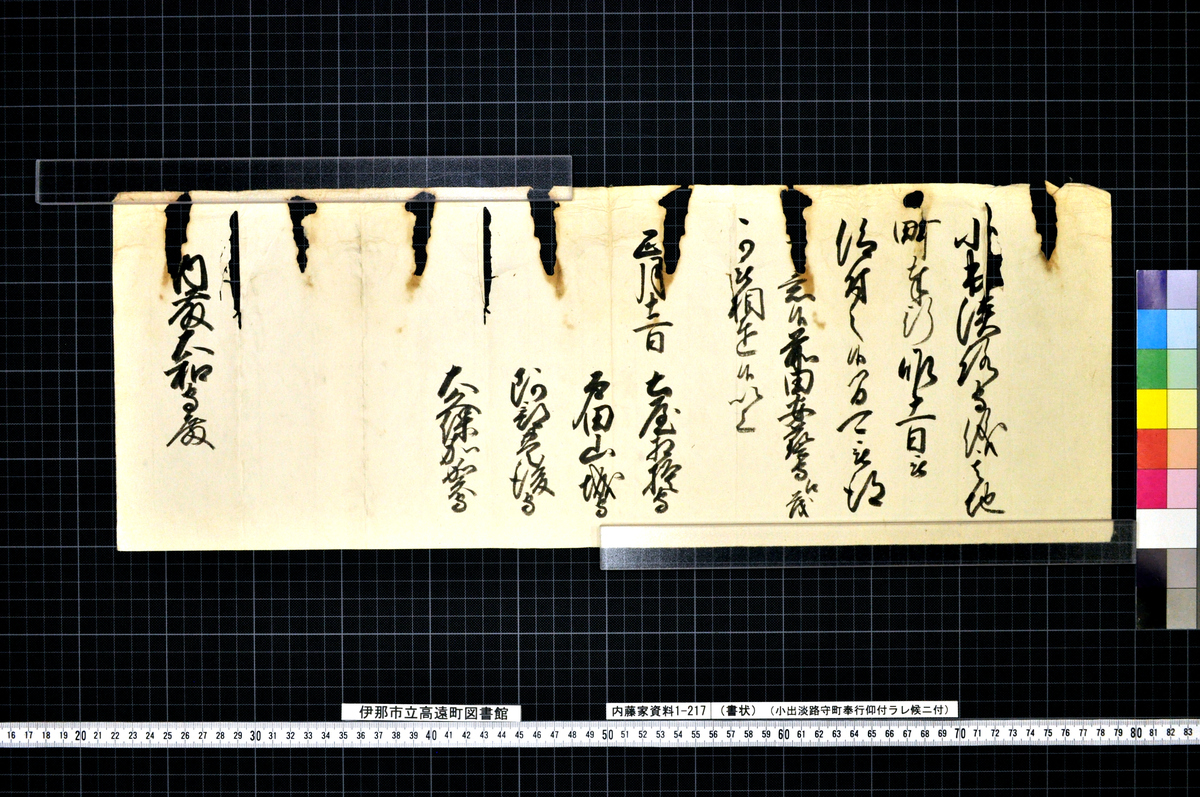 小出淡路守儀当地
町奉行昨十一日被
仰付之候間可被得
意候前田安芸守江茂
可被相達候以上
正月十二日 土屋相模守
戸田山城守
阿部豊後守
大久保加賀守
内藤大和守殿
伊那市立高遠町図書館
内藤家資料1-217 (書状) (小出淡路守町奉行仰付ラレ候ニ付)
16 17 18 19 20 21 22 23 24 25 26 27 28 29 30 31 32 33 34 35 36 37 38 39 40 41 42 43 44 45 46 47 48 49 50 51 52 53 54 55 56 57 58 59 60 61 62 63 64 65 66 67 68 69 70 71 72 73 74 75 76 77 78 79 80 81 82 83